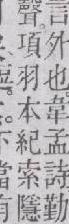 言外也韋孟詩勤
聲項羽本紀索隱